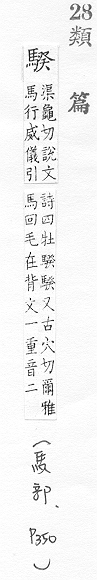 28
類
篇
騤
渠龜切說文
馬行威儀引
詩四牡騤騤又古穴切爾雅
馬回毛在背文一重音二
(馬部、P350)